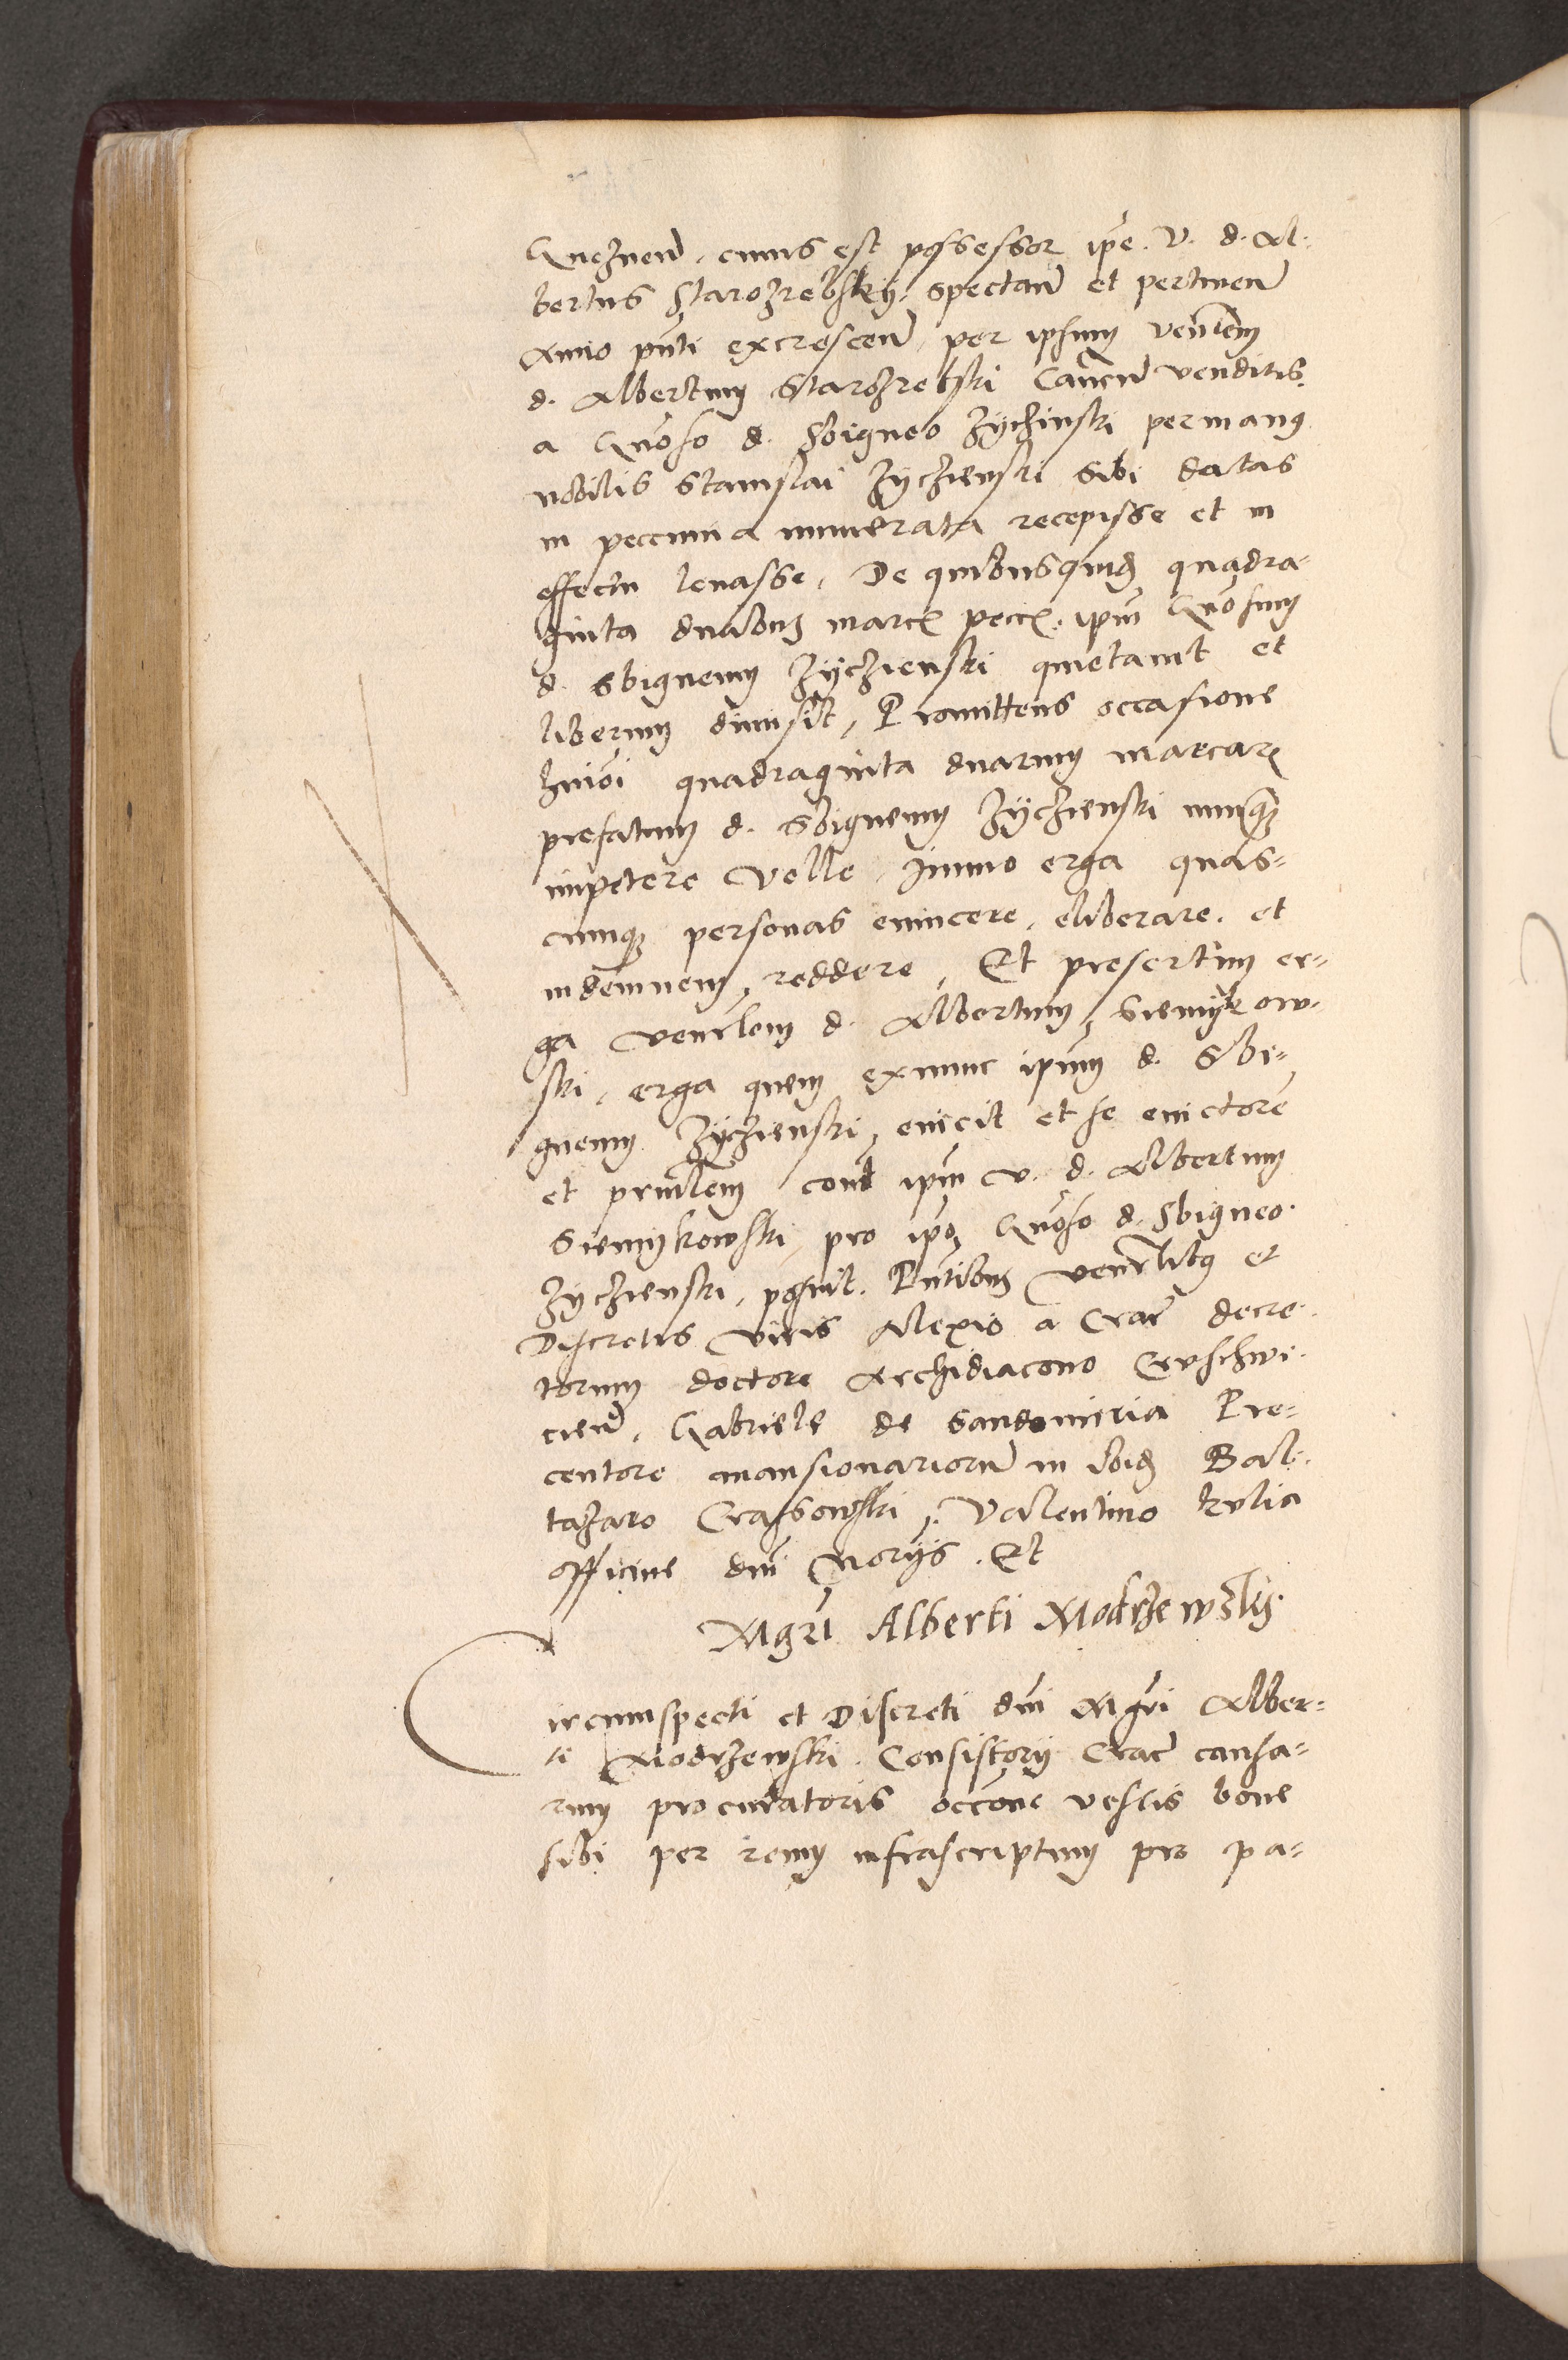 Gneznen̄, cuius est possessor ip̄e. V. d. Al-
bertus Starozrebskÿ: spectan̄ et pertinen̄
Anno pn̄ti excrescen̄, per ipsum Ven̄lem
d. Albertum Starozrebski Canon̄ venditis
a Gn̄oso d. Sbigneo Zÿchinski per manus
nobilis Stanislai Zÿchienski sibi datas
in peccunia numerata recepisse et in
effectu levasse, De quibusquid₃ quadra-
ginta duabus marcis pecc. ip̄m Gn̄osum
d. Sbigneum Zÿchienski quietavit et
liberum dimisit, Promittens occasione
hm̄oi quadraginta duarum marcar₂
prefatum d. Sbigneum Zÿchienski nunqₓ
impetere velle, Immo erga quas-
cunqₓ personas evincere, eliberare, et
indemnem reddere, Et presertim er-
ga Venrlem d. Albertum Siemÿkow-
ski, erga quem ex nunc ipsum d. Sbi-
gneum Zÿchienski evicit et se evictorem
et prin̄lem cont ip̄m V. d. Albertum
Siemÿkowski, pro ipso Gn̄oso d. Sbigneo
Zÿchienski, posuit. Pn̄tibus Venrlibus et
Discretis viris Alexio a Crac̄ decre-
torum doctore Archidiacono Cruschwi-
cien̄, Gabriele de Sandomiria Pre-
centore mansionariorum in ibid₃ Bal-
tazaro Crassowski, Valentino Kulia
officine dn̄i Notariis. Et
Mgr̄i Alberti Modrzewskÿ.
Circumspecti et Discreti dn̄i Mgr̄i Alber-
ti Modrzewski Consistorÿ Crac̄ causa-
rum procuratoris occ̄one vestis bone
sibi per reum infrascriptum pro pa-